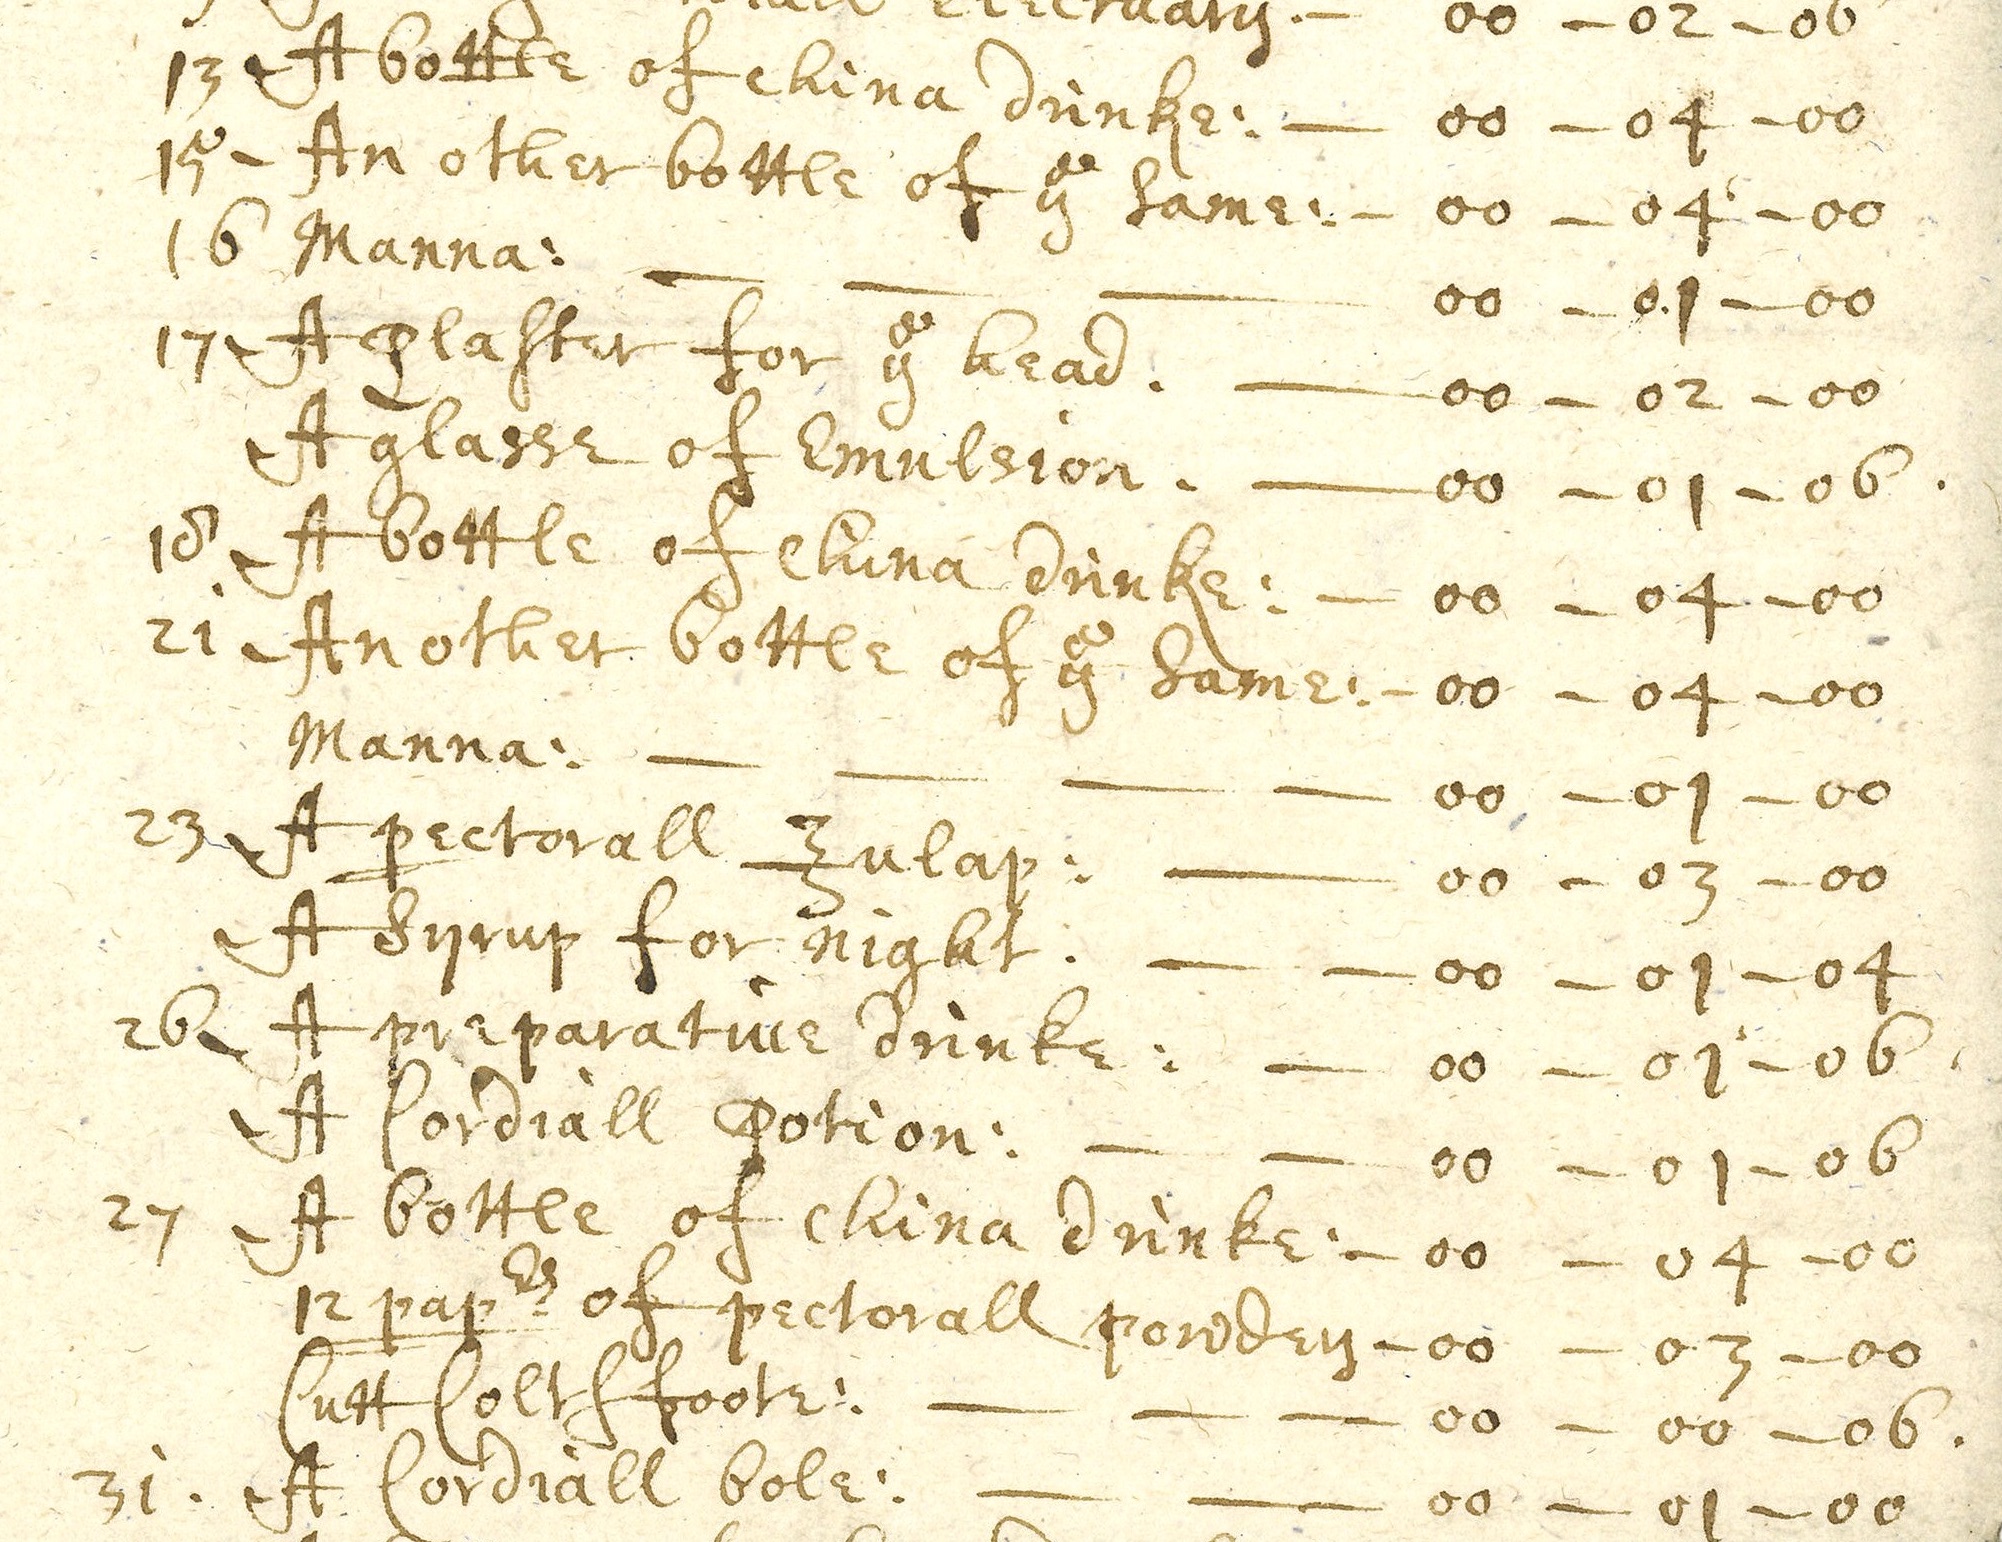 Electuary. — 00 — 02 — 06
13 A bottle of china drinke: — 00 — 04 — 00
15 - An other bottle of yᵉ same: - 00 — 04 — 00
16 Manna: — — — 00 — 01 — 00
17 A Plaster for yᵉ head. — 00 — 02 — 00
A glasse of Emulsion. — 00 — 01 — 06.
18. A bottle of china drinke: — 00 — 04 — 00
21 An other bottle of yᵉ same: - 00 — 04 — 00
Manna: — — — — 00 — 01 — 00
23 A pectorall Julap: — 00 — 03 — 00
A Syrup for night. — — 00 — 01 — 04
26 A preparatiue drinke: — 00 — 01 — 06.
A Cordiall Potion: — — 00 — 01 — 06
27 A bottle of china drinke: — 00 — 04 — 00
12 papʳˢ of pectorall powder — 00 — 03 — 00
Cutt Coltsfoote: — — — 00 — 00 — 06.
31. A Cordiall bole: — — 00 — 01 — 00